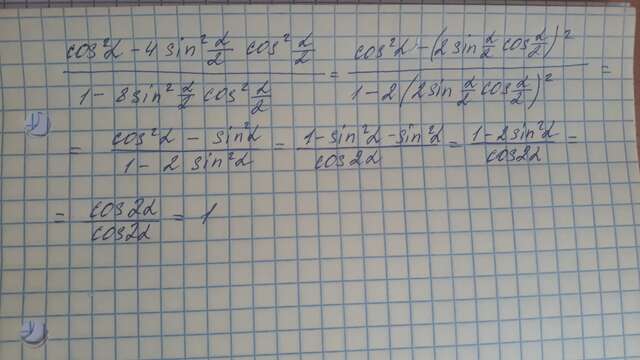 (cos²α - 4 sin² α/2 cos² α/2)/(1 - 8 sin² α/2 cos² α/2) = (cos²α - (2 sin α/2 cos α/2)²)/(1 - 2 (2 sin α/2 cos α/2)²) =
= (cos²α - sin²α)/(1 - 2 sin²α) = (1 - sin²α - sin²α)/(cos2α) = (1 - 2 sin²α)/(cos2α) =
= (cos2α)/(cos2α) = 1